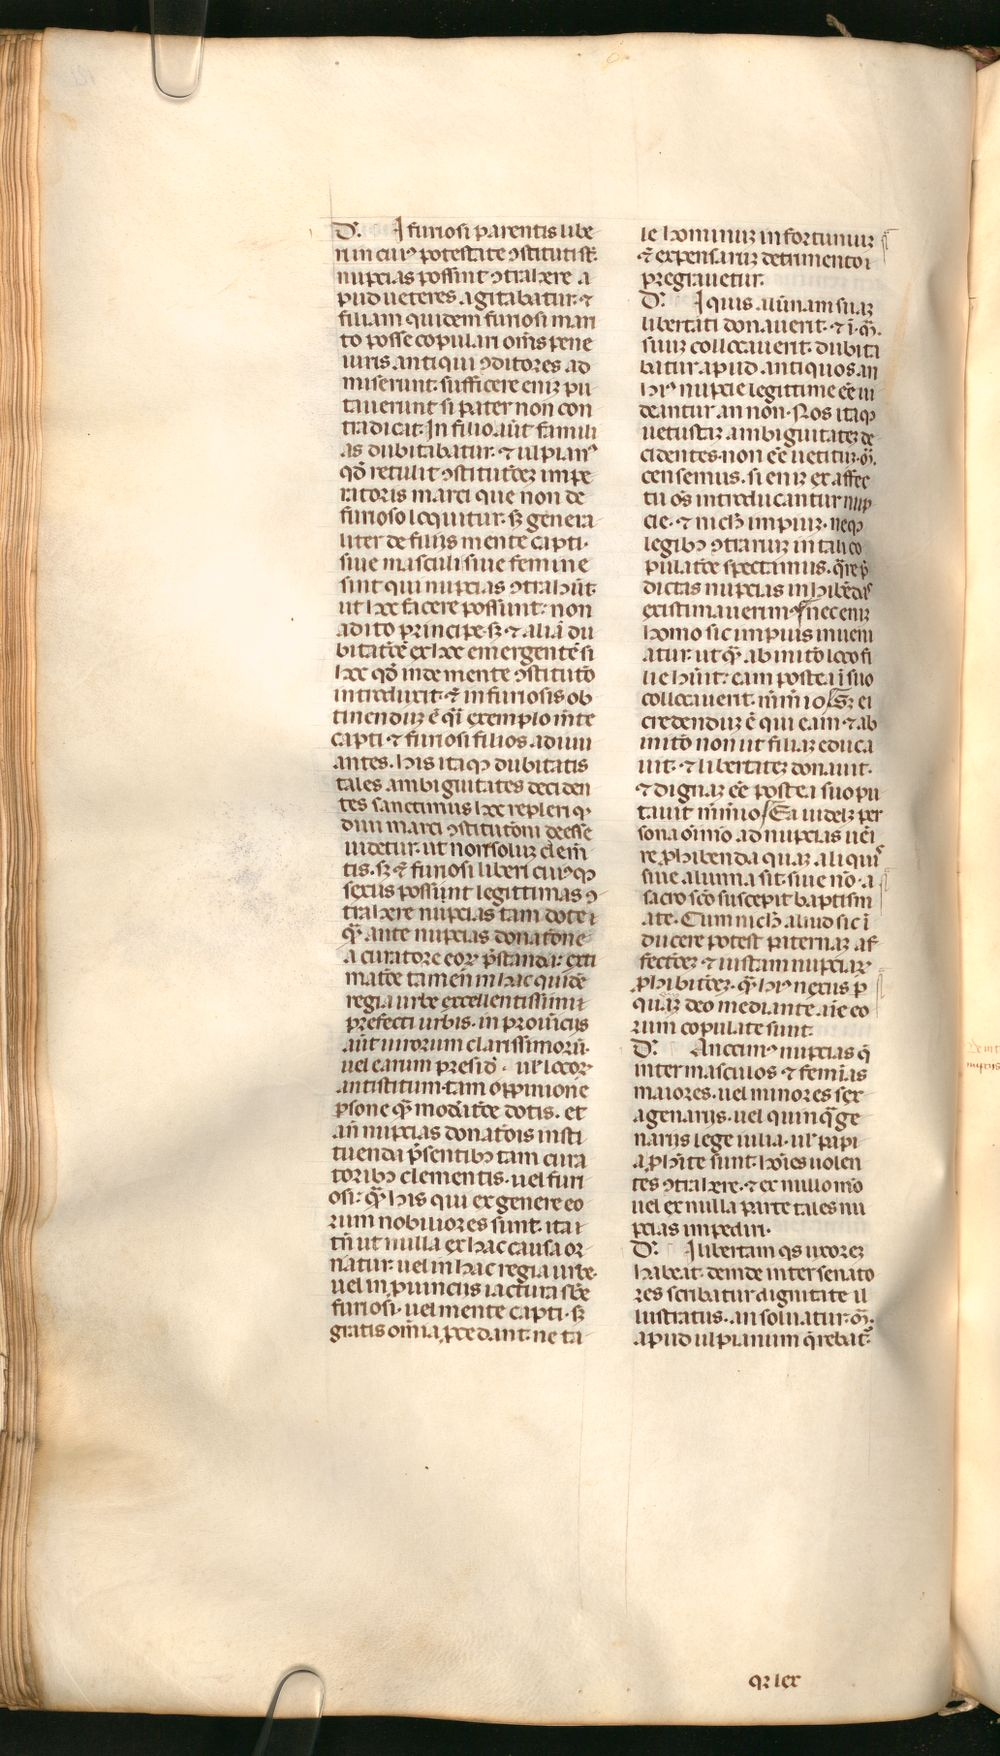 D'. I furiosi parentis libe
ri in cui⁹ potestate ꝯstituti st̄
nupcias possint ꝯtrahere a
pud ueteres agitabatur. ⁊
filiam quidem furiosi mari
to posse copulari om̄s pene
iuris antiqui ꝯditores ad
miserunt. sufficere eniꝫ pu
tauerunt si pater non con
tradicat. In filio aūt famili
as dubitabatur. ⁊ ulpian⁹
qd̄ retulit ꝯstitutōeꝫ impe
ratoris marci que non de
furioso loquitur. sꝫ genera
liter de filiis mente capti.
siue masculi siue femine
sint qui nupcias ꝯtrahūt.
ut hoc facere possunt. non
adito principe. sꝫ ⁊ aliā du
bitatōē ex hoc emergentē si
hoc qd̄ in de mente ꝯstituto
introduxit. ⁊ in furiosis ob
tinenduꝫ ē q̄i exemplo mēte
capti ⁊ furiosi filios adiuu
antes. his itaqꝫ dubitatis
tales ambiguitates deciden
tes sanctimus hoc repleri qꝫ
diui marci ꝯstitutōni deesse
uidetur. ut non soluꝫ demē
tis. sꝫ ⁊ furiosi liberi cui⁹qꝫ
sexus possunt legittimas ꝯ
trahere nupcias tam dote
q̄ ante nupcias donatōne
a curatore eoꝝ p̄standa. exti
matōe tamen in hac quidē
regia urbe excellentissimi
prefecti urbis. in prouīciis
aūt uirorum clarissimorū.
uel earum presidū. ul' locoꝝ
antistitum. tam oppinione
ꝑsone q̄ moderatōe dotis. et
añ nupcias donatōis insti
tuenda p̄sentibꝫ tam cura
toribꝫ dementis. uel furi
osi. q̄ his qui ex genere eo
rum nobiliores sunt. ita
tn̄ ut nulla ex hac causa or
iatur. uel in hac regia urbe.
uel in ꝓuinciis iactura sbē
furiosi. uel mente capti. sꝫ
gratis om̄ia ꝓcedant. ne ta
le hominuꝫ infortuniuꝫ
⁊ expensaruꝫ detrimento
pregrauetur.
D'. I quis alūnam suaꝫ
libertati donauerit. ⁊ ī m̄.
suuꝫ collocauerit. dubita
batur apud antiquos. an
hi⁹ nupcie legittime eē ui
deantur an non. Nos itaqꝫ
uetustaꝫ ambiguitateꝫ de
cidentes. non eē uetituꝫ. m̄.
censemus. si eniꝫ ex affec
tu om̄s introducantur nup
cie. ⁊ nichil impiuꝫ. neqꝫ
legibꝫ ꝯtrariuꝫ in tali co
pulatōe spectamus. q̄re p̄
dictas nupcias inhibēdas
existimauerim⁹. nec eniꝫ
homo sic impius inueni
atur. ut q̄ ab initō loco fi
lie hūit. eam postea ī suo
collocauerit. m̄rīmōio. Sꝫ ei
credenduꝫ ē qui eam ⁊ ab
initō non ut filiaꝫ educa
uit. ⁊ libertateꝫ donauit.
⁊ dignaꝫ eē postea suo pu
tauit m̄rīmōio. Ea uidelꝫ per
sona oīmo ad nupcias uēi
re ꝓhibenda quaꝫ aliquis
siue alumna sit. siue nō. a
sacro scō suscepit baptism
ate. Cum nichil aliud sic ī
ducere potest paternaꝫ af
fectōeꝫ ⁊ iustam nupciaꝝ
ꝓhibitōeꝫ. q̄ hi⁹ nexus ꝑ
quaꝫ deo mediante aīe eo
rum copulate sunt.
D'. Anccim⁹ nupcias q̄
inter masculos ⁊ femīas
maiores. uel minores sex
agenariis. uel quinq̄ge
nariis lege iulia. ul' papi
a ꝓhīte sunt. hoīes uolen
tes ꝯtrahere. ⁊ ex nullo mō
uel ex nulla parte tales nu
pcias impediri.
D'. I libertam qs uxoreꝫ
habeat. deinde inter senato
res scribatur dignitate il
lustratus. an soluatur. m̄.
apud ulpianum q̄rebat᷑.
qꝫ lex